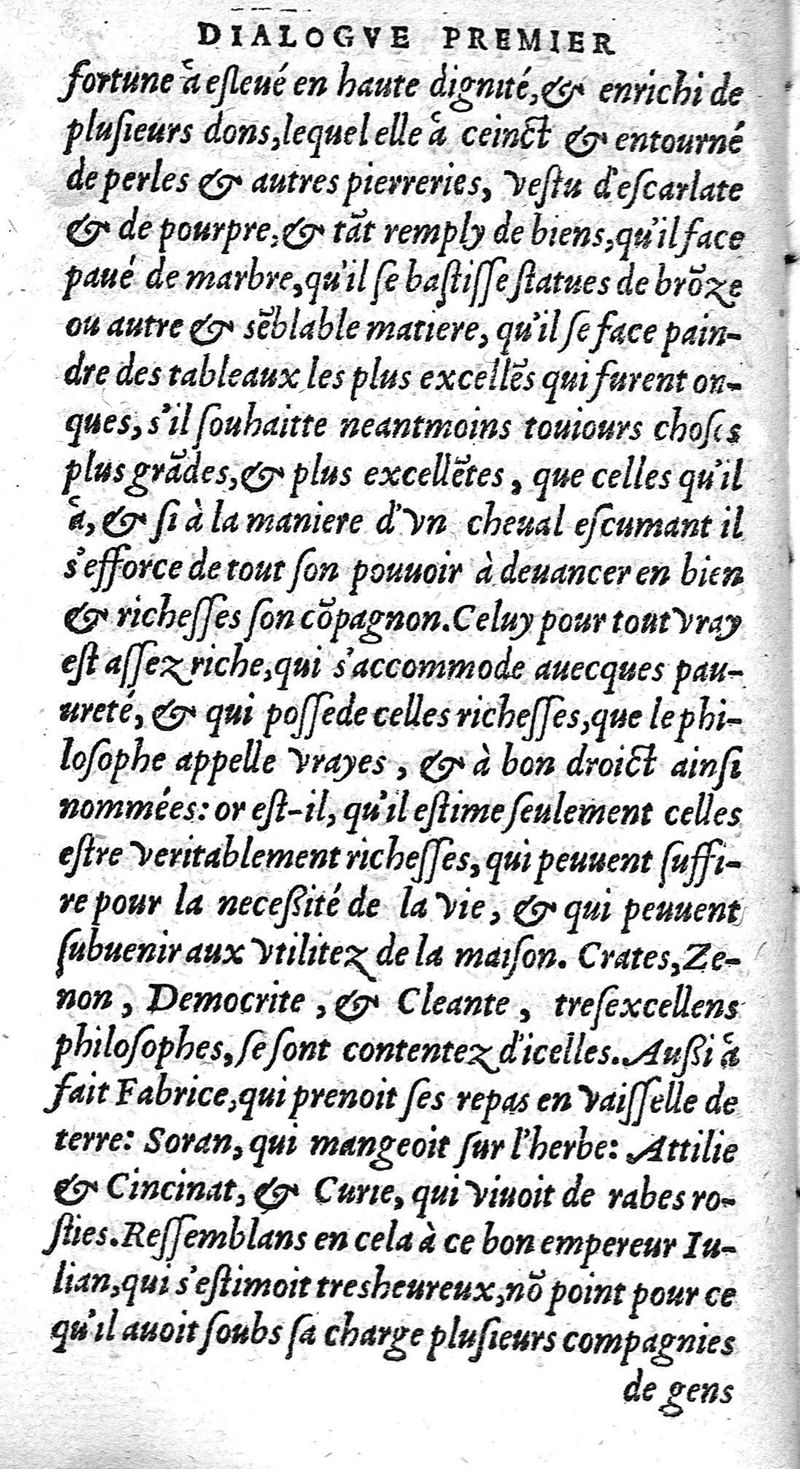 DIALOGVE PREMIER
fortune à esleué en haute dignité, & enrichi de
plusieurs dons, lequel elle à ceinct & entourné
de perles & autres pierreries, vestu d'escarlate
& de pourpre, & tãt remply de biens, qu'il face
paué de marbre, qu'il se bastisse statues de brõze
ou autre & sẽblable matiere, qu'il se face pain-
dre des tableaux les plus excellẽs qui furent on-
ques, s'il souhaitte neantmoins touiours choses
plus grãdes, & plus excellẽtes, que celles qu'il
à, & si à la maniere d'vn cheual escumant il
s'efforce de tout son pouuoir à deuancer en bien
& richesses son cõpagnon. Celuy pour tout vray
est assez riche, qui s'accommode auecques pau-
ureté, & qui possede celles richesses, que le phi-
losophe appelle vrayes, & à bon droict ainsi
nommées: or est-il, qu'il estime seulement celles
estre veritablement richesses, qui peuuent suffi-
re pour la neceßité de la vie, & qui peuuent
subuenir aux vtilitez de la maison. Crates, Ze-
non, Democrite, & Cleante, tresexcellens
philosophes, se sont contentez d'icelles. Außi à
fait Fabrice, qui prenoit ses repas en vaisselle de
terre: Soran, qui mangeoit sur l'herbe: Attilie
& Cincinat, & Curie, qui viuoit de rabes ro-
sties. Ressemblans en cela à ce bon empereur Iu-
lian, qui s'estimoit tresheureux, nõ point pour ce
qu'il auoit soubs sa charge plusieurs compagnies
de gens